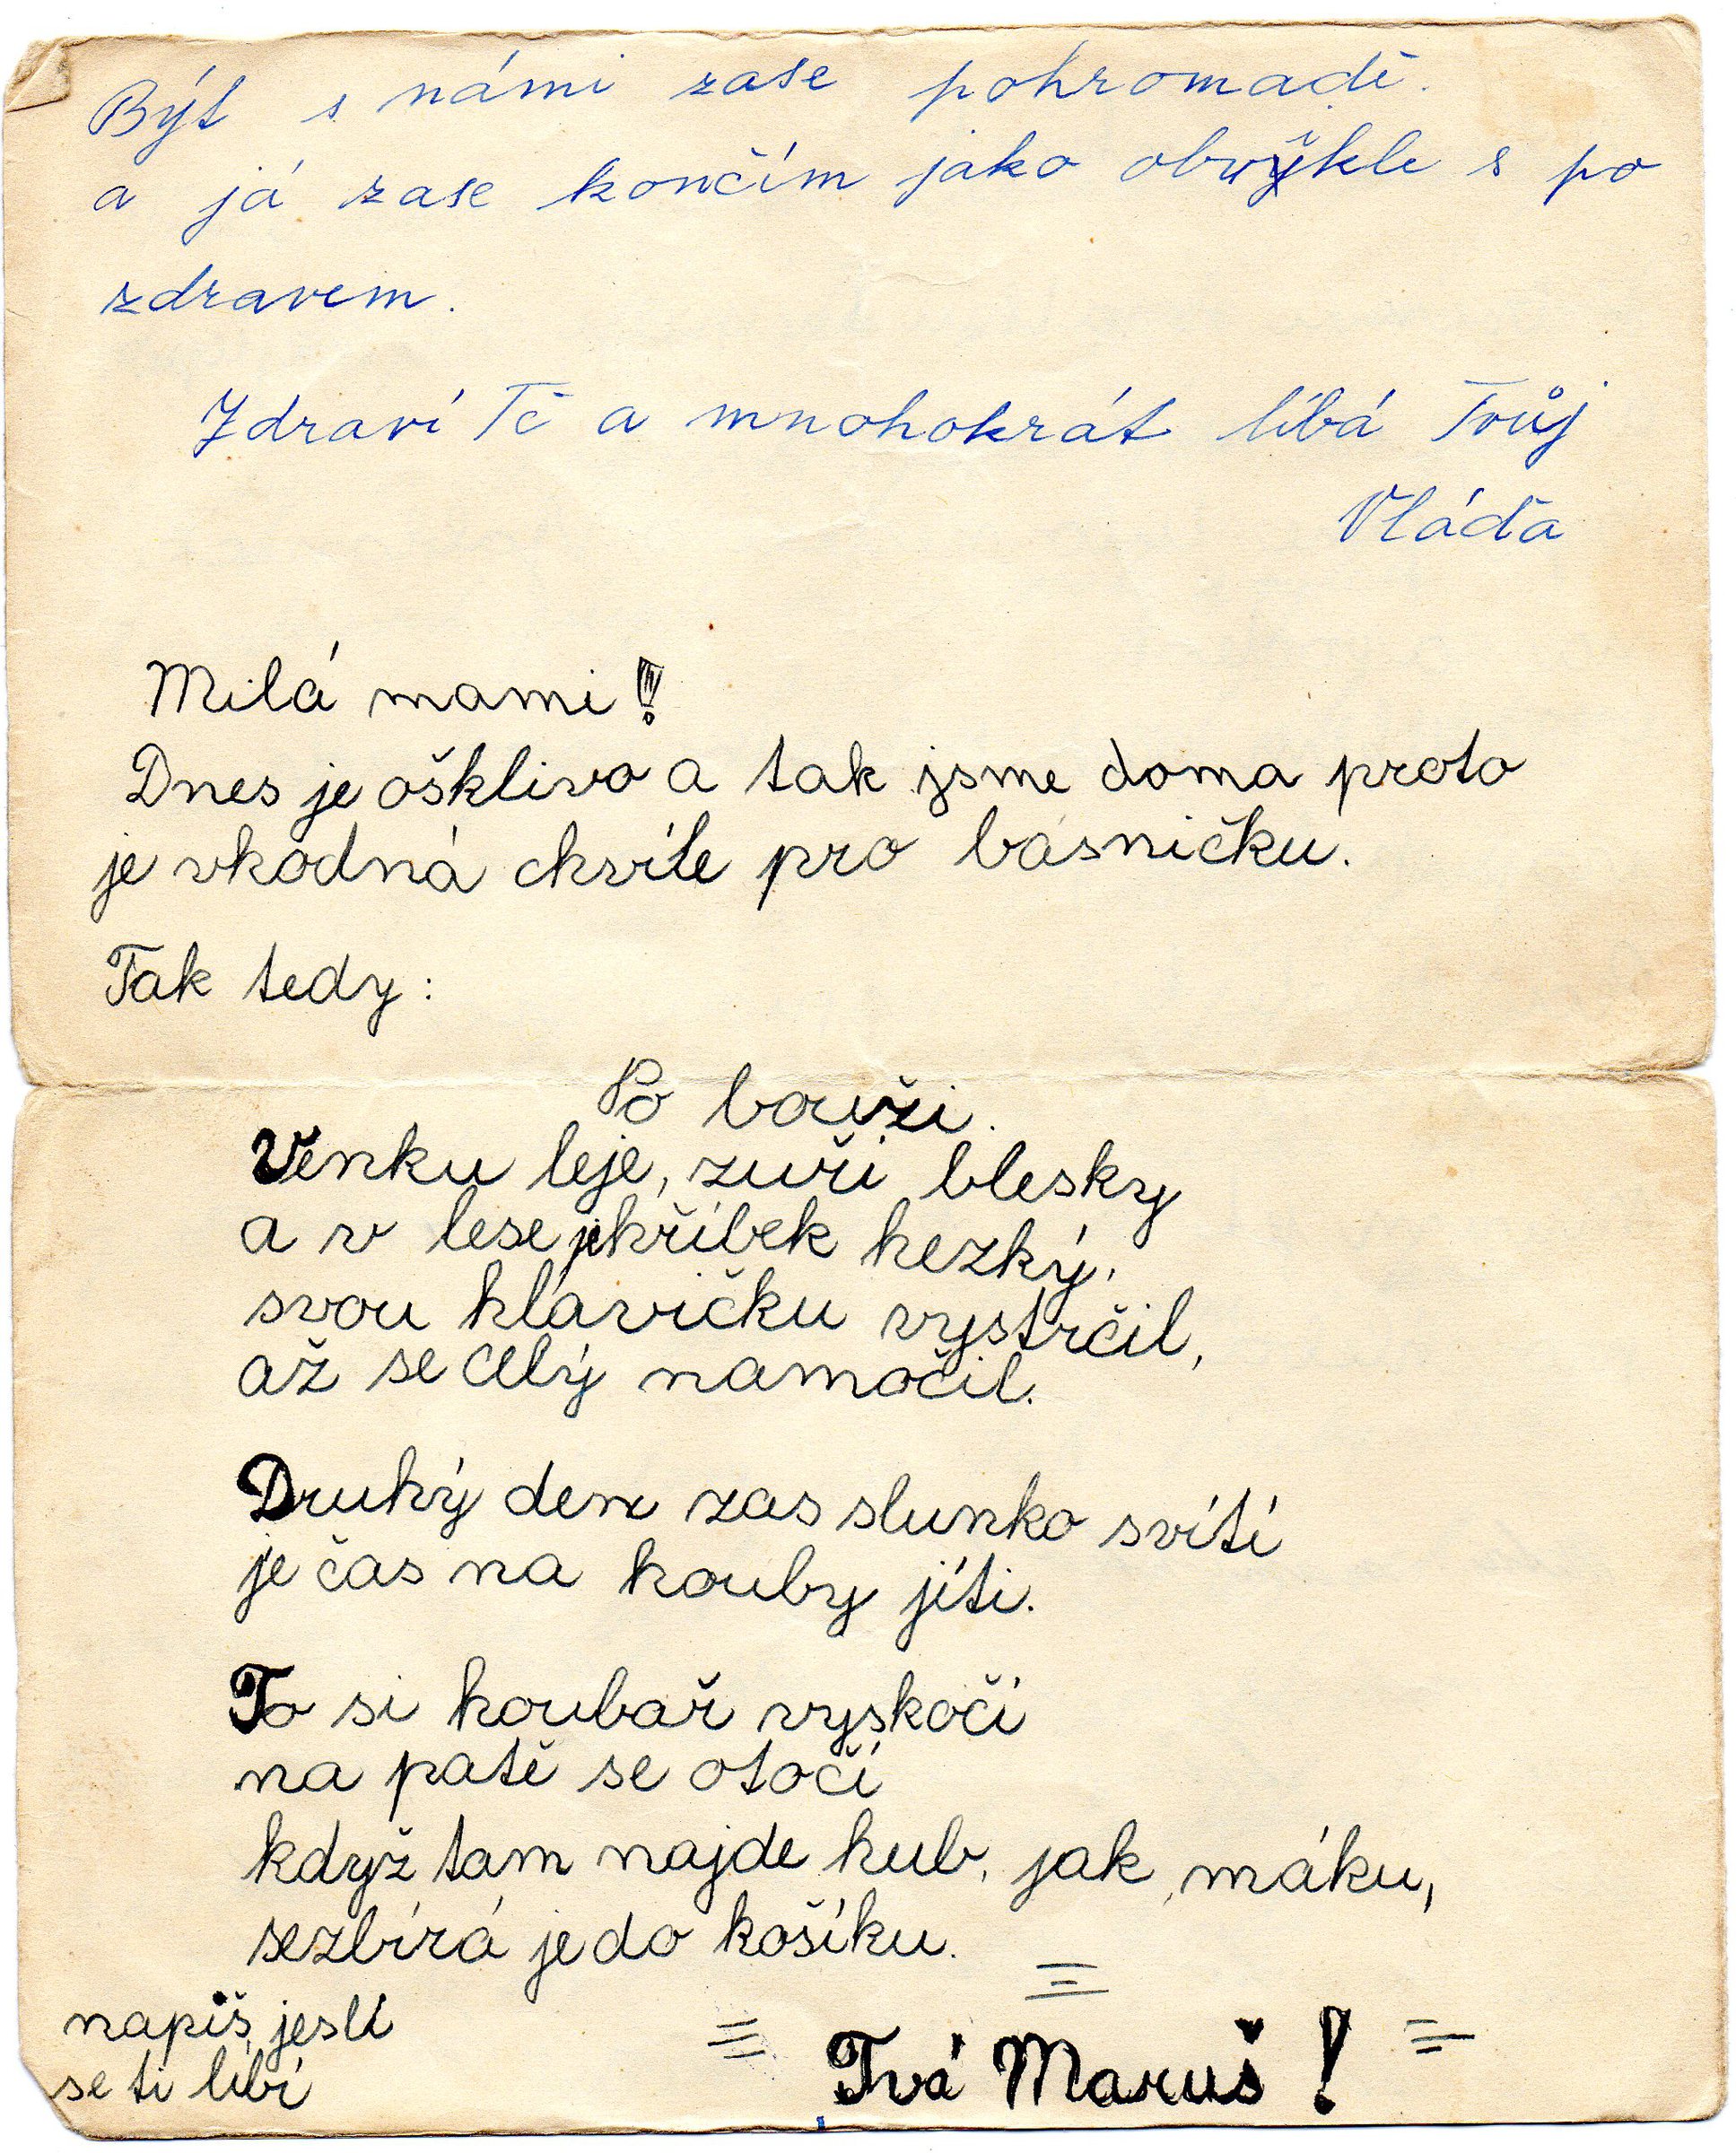 Být s námi zase pohromadě.
a já zase končím jako obvykle s po
zdravem.
Zdraví Tě a mnohokrát líbá Tvůj
Vláďa
Milá mami!
Dnes je ošklivo a tak jsme doma proto
je vhodná chvíle pro básničku.
Tak tedy:
Po bouři.
Venku leje, zuří blesky
a v lese je hříbek hezký,
svou hlavičku vystrčil,
až se celý namočil.
Druhý den zas slunko svítí
je čas na houby jíti.
To si houbař vyskočí
na patě se otočí
když tam najde hub, jak máku,
sezbírá je do košíku.
napiš jesli
se ti líbí
Tvá Maruš!